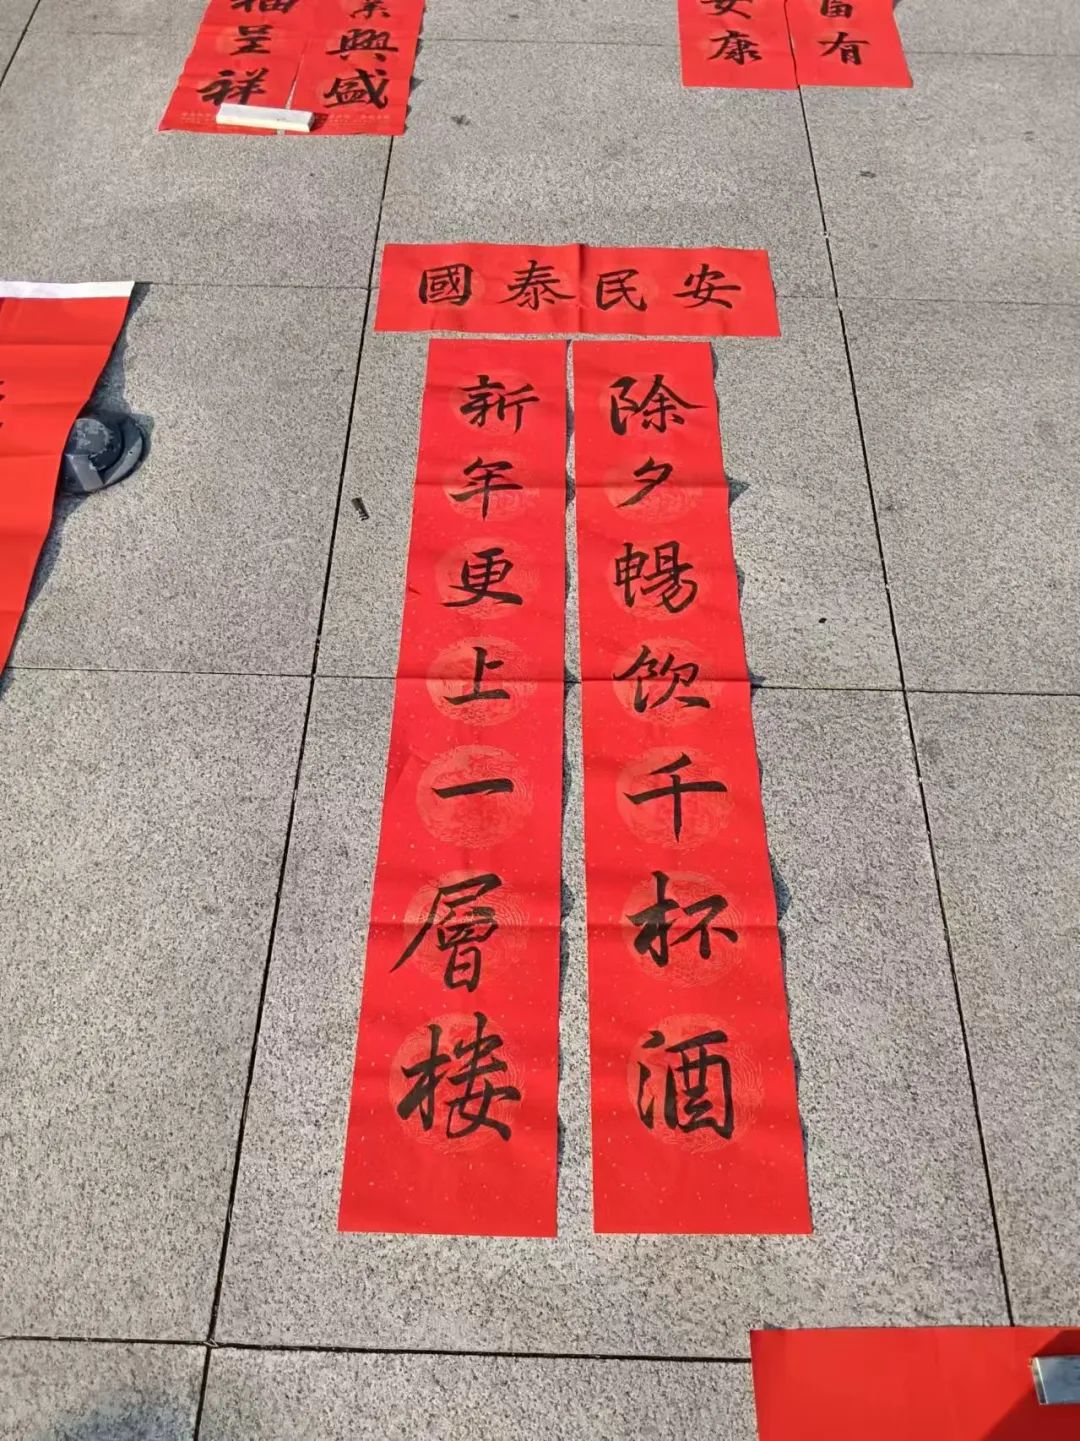 國泰民安
除夕暢饮千杯酒
新年更上一層楼
興盛
呈祥
富有
安康